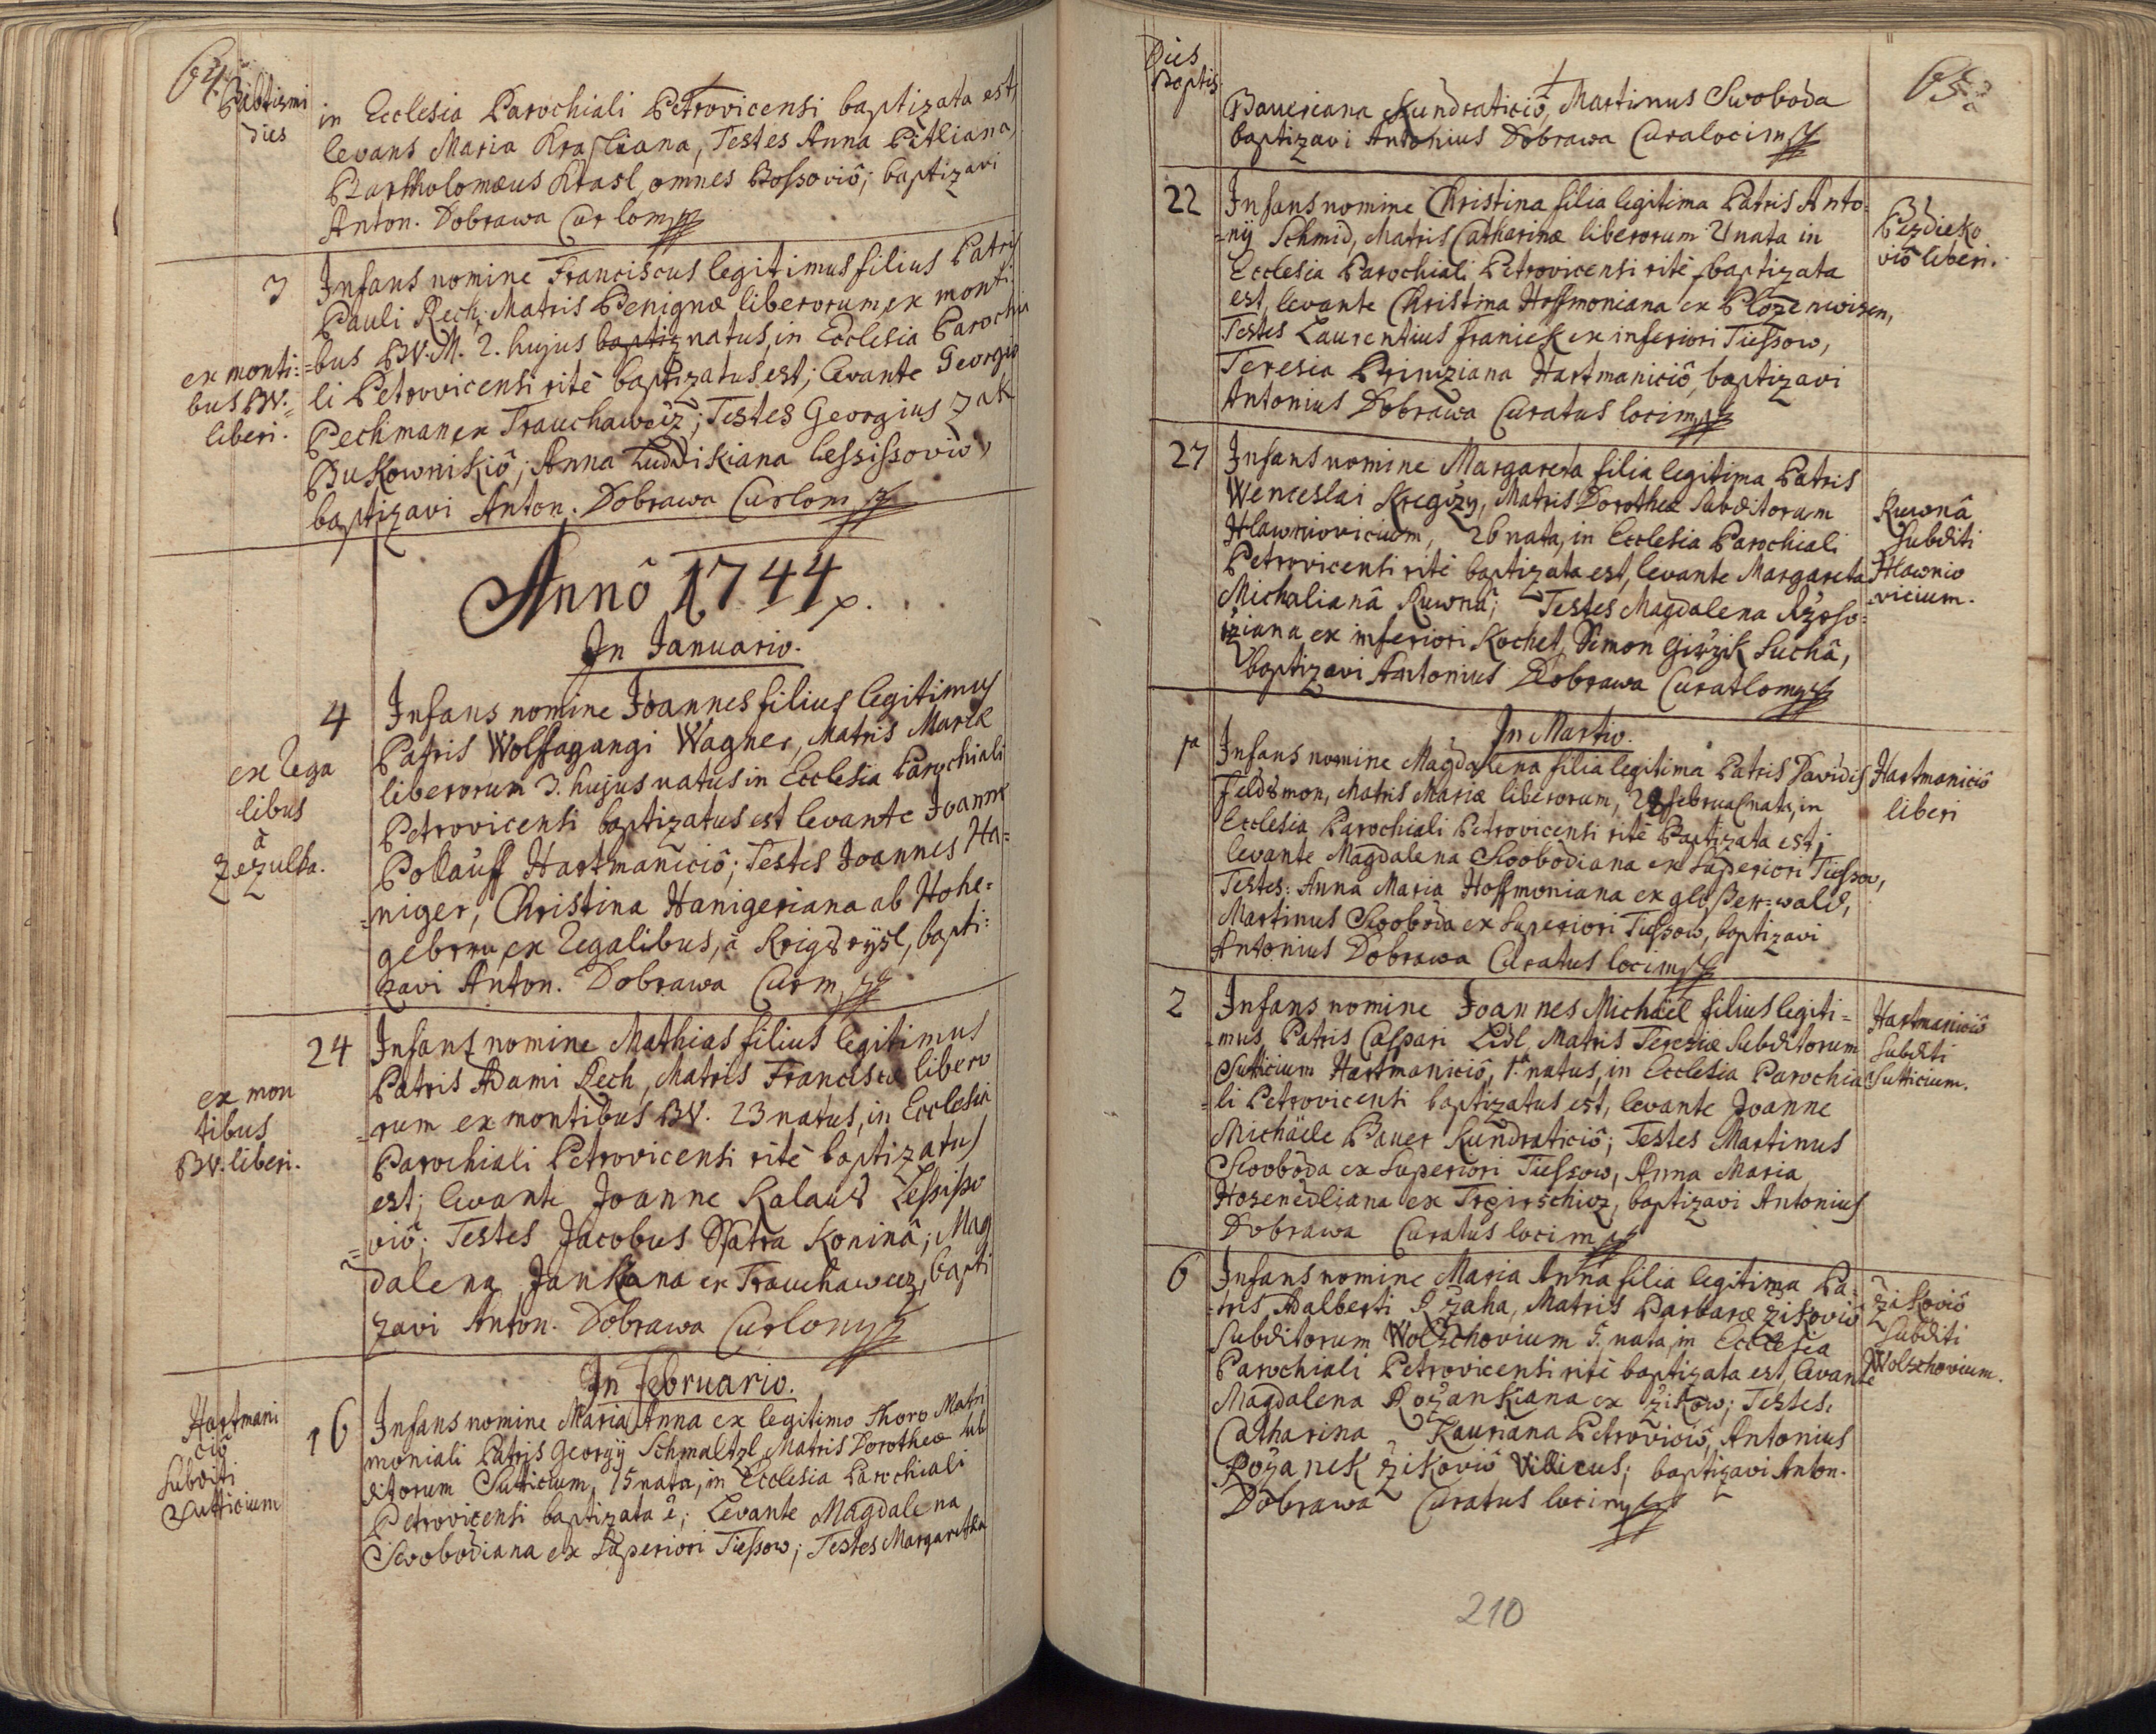 64.
Babtismi
dies
in Ecclesia Parochiali Petrovicensi baptizata est,
levans Maria Krasliana, Testes Anna Pitliana,
Bartholomæus Krasl, omnes Bossoviô; baptizavi
Anton. Dobrawa Cur lom
3
Infans nomine Franciscus legitimus filius Patris
Pauli Rech, Matris Benignæ liberorum, ex monti
ex monti:
bus BV.
liberi.
=bus BV. M. 2. hujus baptiz natus, in Ecclesia Parochia
li Petrovicensi ritè baptizatus est; levante Georgio
Pechman ex Trauchawecz; Testes Georgius Zak
Bukownikiô; Anna Ludwikiana Lessissoviô,
baptizavi Anton. Dobrawa Curlom
Annô 1744
In Januario.
4
Infans nomine Joannes filius legitimus
Patris Wolfagangi Wagner, Matris Mariæ
ex Rega
libus
à
Zezulka.
liberorum 3. hujus natus in Ecclesia Parochiali
Petrovicensi baptizatus est levante Joanne
Pollauf Hartmaniciô; Testes Joannes Ha=
=niger, Christina Hanigeriana ab Hohe=
gebrnu, ex Regalibus, à Krigsrysl, bapti:
zavi Anton. Dobrawa Curm
24
Infans nomine Mathias filius legitimus
Patris Adami Rech, Matris Francisca libero
ex mon
tibus
BV. liberi.
=rum ex montibus BV. 23 natus, in Ecclesia
Parochiali Petrovicensi ritè baptizatus
est; levante Joanne Kalaus Lessisso
=viô; Testes Jacobus Spatra Koninâ; Mag
dalena Jankana ex Trauchawecz, bapti
zavi Anton. Dobrawa Curlom
In Februario.
Hartmani
ciô
Subditi
Sutticium
16
Infans nomine Maria Anna ex legitimo thoro Matri
moniali Patris Georgij Schmaltzl, Matris Dorotheæ sub
ditorum Sutticium, 15 nata, in Ecclesia Parochiali
Petrovicensi baptizata ē; Levante Magdalena
Swobodiana ex Superiori Tiessow; Testes Margaretha
Dies
Baptis
65.
Baueriana Kundraticiô, Martinus Swoboda
baptizavi Antonius Dobrawa Cura locim
22
Infans nomine Christina filia legitima Patris Anto
=nij Schmid, Matris Catharinæ liberorum 21 nata in
Bezdieko
viô liberi.
Ecclesia Parochiali Petrovicensi ritè baptizata
est, levante Christina Hoffmoniana ex Plozenwisen,
Testes Laurentius franiek ex inferiori Tiessow,
Teresia Priniziana Hartmaniciô, baptizavi
Antonius Dobrawa Curatus locim
27
Infans nomine Margareta filia legitima Patris
Wenceslai Kregčzy, Matris Dorotheæ Subditorum
Ruwnâ
Subditi
Hlawnio
vicium.
Hlawniovicium, 26 nata, in Ecclesia Parochiali
Petrovicensi ritè baptizata est, levante Margareta
Michalianâ Ruwnâ; Testes Magdalena Rzoso=
iziana ex inferiori Kochet, Simon Girzik Suchâ,
baptizavi Antonius Dobrawa Curatlom
In Martio.
1a
Infans nomine Magdalena filia legitima Patris Davidis
Hartmaniciô
liberi
Feldsmon, Matris Mariæ liberorum, 28 februa nata, in
Ecclesia Parochiali Petrovicensi ritè Baptizata est;
levante Magdalena Swobodiana ex Superiori Tiessow,
Testes: Anna Maria Hoffmoniana ex gloßer=wald,
Martinus Swoboda ex Superiori Tiessow, baptizavi
Antonius Dobrawa Curatus locim
2
Infans nomine Joannes Michäel filius legiti=
=mus Patris Caspari Lidl, Matris Teresiæ Subditorum
Hartmaniciô
Subditi
Sutticium.
Sutticium Hartmaniciô, 1. natus, in Ecclesia Parochia
=li Petrovicensi baptizatus est, levante Joanne
Michäele Bauer Kundraticiô; Testes Martinus
Swoboda ex Superiori Tiessow, Anna Maria
Hosenedliana ex Trpieschicz, baptizavi Antonius
Dobrawa Curatus locim
6
Infans nomine Maria Anna filia legitima Pa=
=tris Adalberti Rzaha, Matris Barbaræ Zikoviô
Zikoviô
Subditi
Wolschovium.
Subditorum Wolschovium 5. nata, in Ecclesia
Parochiali Petrovicensi ritè baptizata est, levante
Magdalena Rozankiana ex Zikow; Testes:
Catharina Kauriana Petroviciô, Antonius
Rozanek Zikoviô Villicus; baptizavi Anton.
Dobrawa Curatus locim
210